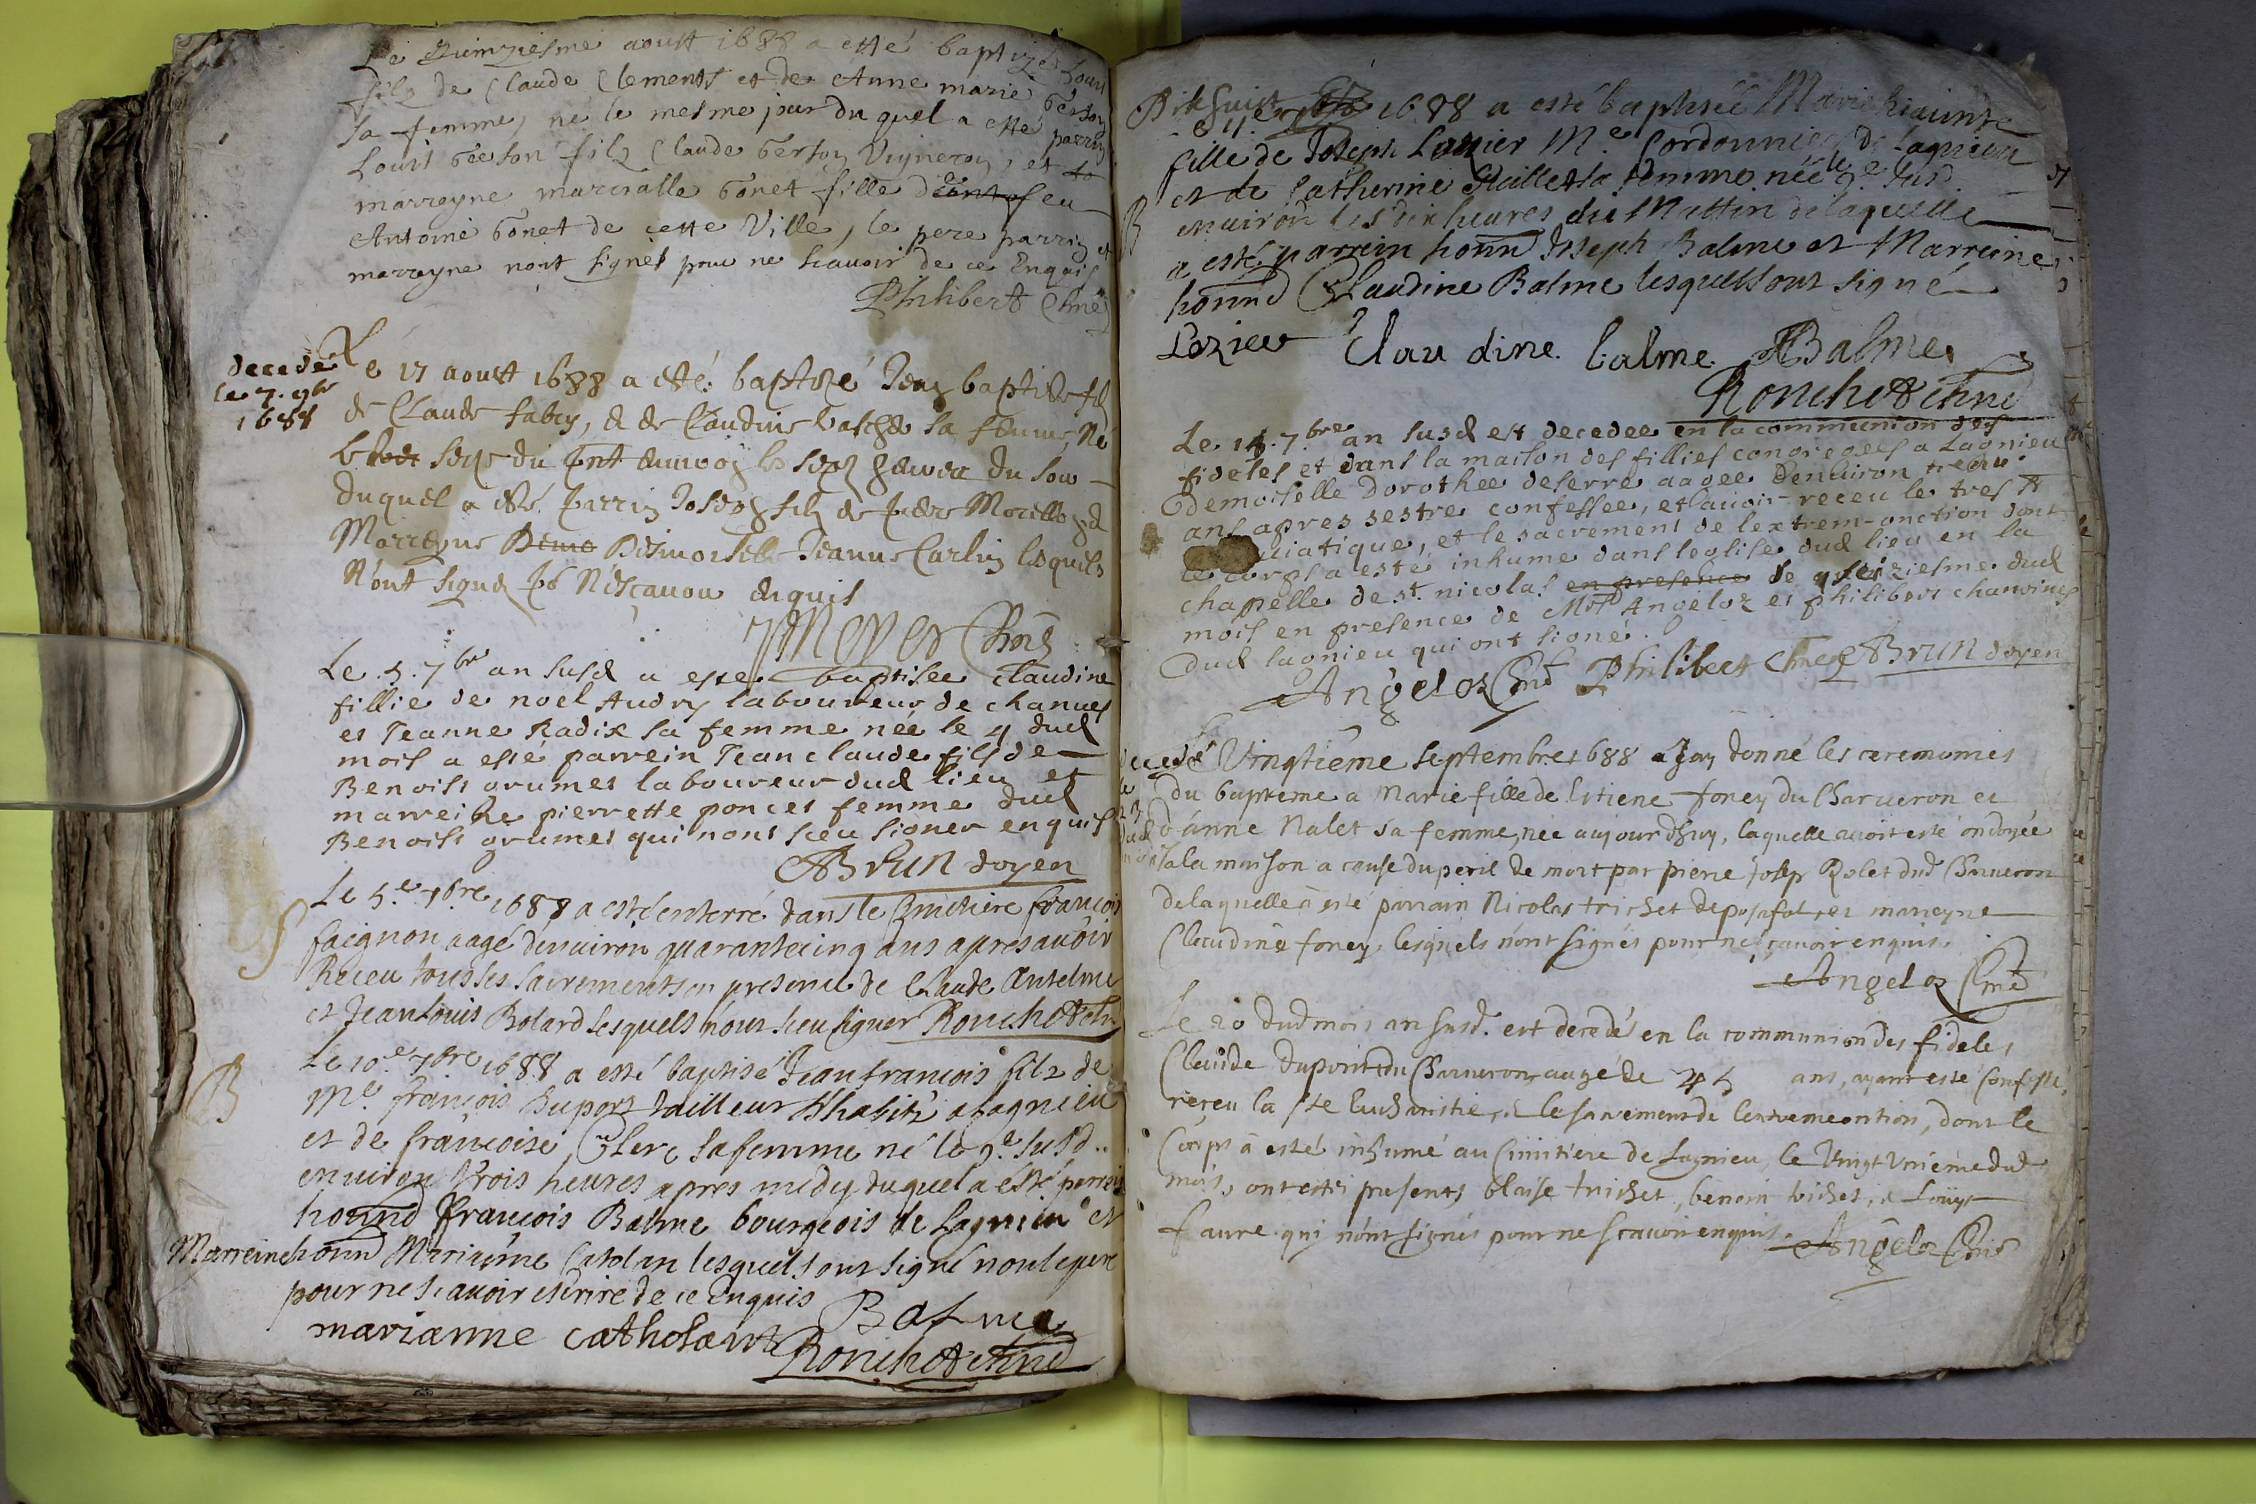 Le quinziesme aoust 1688 a esté baptizé Louis
filz de Claude Clement et de Anne marie berson
sa femme, né le mesme jour du quel a esté parrin
Louis berson filz Claude berson Vigneron, et
marreyne marcialle bonet fille feu
Antoine bonet de cette Ville, le pere parrin et
marreyne n'ont signés pour ne scavoir de ce Enquis
Philibert Chne
decede
le 7. 9bre
1688
Le 17 aoust 1688 a esté baptizé Jean baptiste fils
de Claude fabry, & de Claudine sa femme, Né
le seize du pnt environ les sept heures du soir
duquel a esté parrin Joseph fils de
Marreyne Demoiselle Jeanne Carlin lesquels
N'ont signé po Ne scavoir enquis
Meyer Chne
Le .5. 7bre an susd a este baptisee Claudine
fillie de noel Audry laboureur de chanves
et Jeanne Radix sa femme née le 4 dud
mois a esté parrein Jean claude fils de
Benoist grumet laboureur dud lieu et
marreine pierrette poncet femme dud
Benoist grumet qui nont sceu signer enquis
Brun doyen
S
Le 5.e 7bre 1688 a esté enterré dans le Cimitiere francois
facgnon aagé d'environ quarantecinq ans apres avoir
Receu tous ses sacrements en presence de Claude Antelme
et Jean Louis Bolard lesquels n'ont sceu signer Ronchet chne
B
Le 10.e 7bre 1688 a esté baptisé Jean francois filz de
Me. francois Duport tailleur d'habitz a Lagnieu
et de francoise Clerc sa femme né le 9e susd.
environ trois heures apres midy duquel a esté parrein
honnd francois Balme bourgeois de Lagnieu et
Marreine honnd Marianne Catolan lesquels ont signé non le pere
pour ne scavoir escrire de ce Enquis
Balme
marianne catholant
Ronchet chne
B
1688 a esté baptisée Marie hiacinte
fille de Joseph Lozier Me. Cordonnier de Lagnieu
et de Catherine sa femme née le 9e susd.
environ les dix heures du Mattin de laquelle
a esté parrein honnd Joseph Balme et Marreine
honnd Claudine Balme lesquels ont signé
Lozier Claudine balme. JBalme
Ronchet chne
Le. 14. 7bre an susd est decedee en la communion des
fideles et dans la maison des fillies congregees a Lagnieu
Demoiselle Dorothee deserre aagee denviron trente
ans apres sestre confessee, et avoir receu le tres St
viatique, et le sacrement de lextrem-onction dont
le corps a esté inhume dans leglise dud lieu en la
chapelle de st. nicolas en presence le quinziesme dud
mois en presence de Mrs Angeloz et philibert chanoines
dud lagnieu qui ont signé.
Angeloz Chne Philibert Chne Brun doyen
decedé
le
23
dud
mois
Le Vingtiême septembre 1688 a Jay donné les ceremonies
du bapteme a marie fille de Estiene foney du Charveron et
d'anne Nalet sa femme, née aujourdhuy, laquelle avoit esté ondoyée
a la maison a cause du peril de mort par pierre josep Rolet dud Charveron
de laquelle a esté parrain Nicolas trichet de posafol, et marreyne
Claudine foney, lesquels n'ont signés pour ne scavoir enquis.
Angeloz Chne
Le 20 dud mois an susd. est decedé en la communion des fideles
Claude Dupont du Charveron, aagé de 45 ans, ayant esté confessé,
receu la ste Eucharistie, & le sacrement de lextremeontion, dont le
Corps a esté inhumé au Cimitiere de Lagnieu, le Vingt Uniême dud
mois, ont estés presents blaise trichet, benoit trichet, & Louys
faure qui n'ont signés pour ne scavoir enquis.
Angeloz Chne